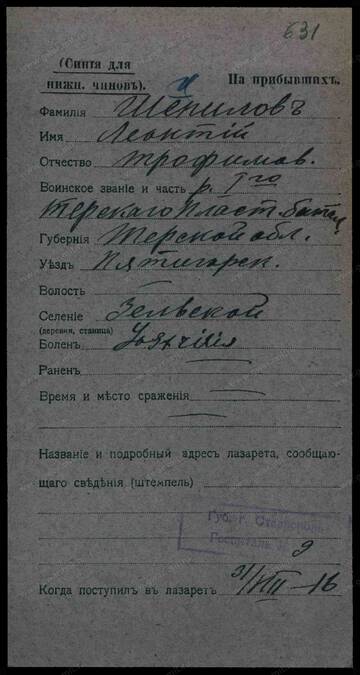 631
(Синтя для
нижн. чиновъ).
На прибывшихъ.
Фамилія Шепиловъ
Имя Леонтій
Отчество Трофимов.
Воинское званіе и часть р. 1го
Терскаго Пласт. батал
Губернія Терской обл.
Уѣздъ Пятигорск.
Волость
Селеніе
(деревня, станица)
Боленъ
Раненъ
Время и мѣсто сраженія
Названіе и подробный адресъ лазарета, сообщаю-
щаго свѣдѣнія (штемпель)
Губ. г. Ставрополь
Госпиталь № 9
Когда поступилъ въ лазаретъ 31/VIII–16